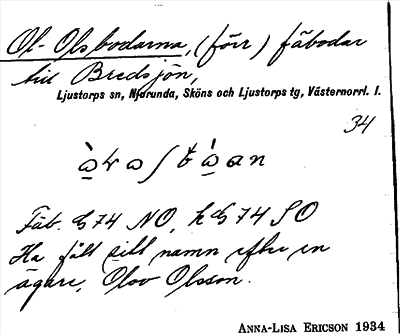 Ol-Olsbodarna, (förr) fäbodar
till Bredsjön,
Ljustorps sn, Njurunda, Sköns och Ljustorps tg, Västernorrl. l.
34
Fäb. 574 NO, h 574 SO
Ha fått sitt namn efter en
ägare, Olov Olsson.
ANNA-LISA ERICSON 1934